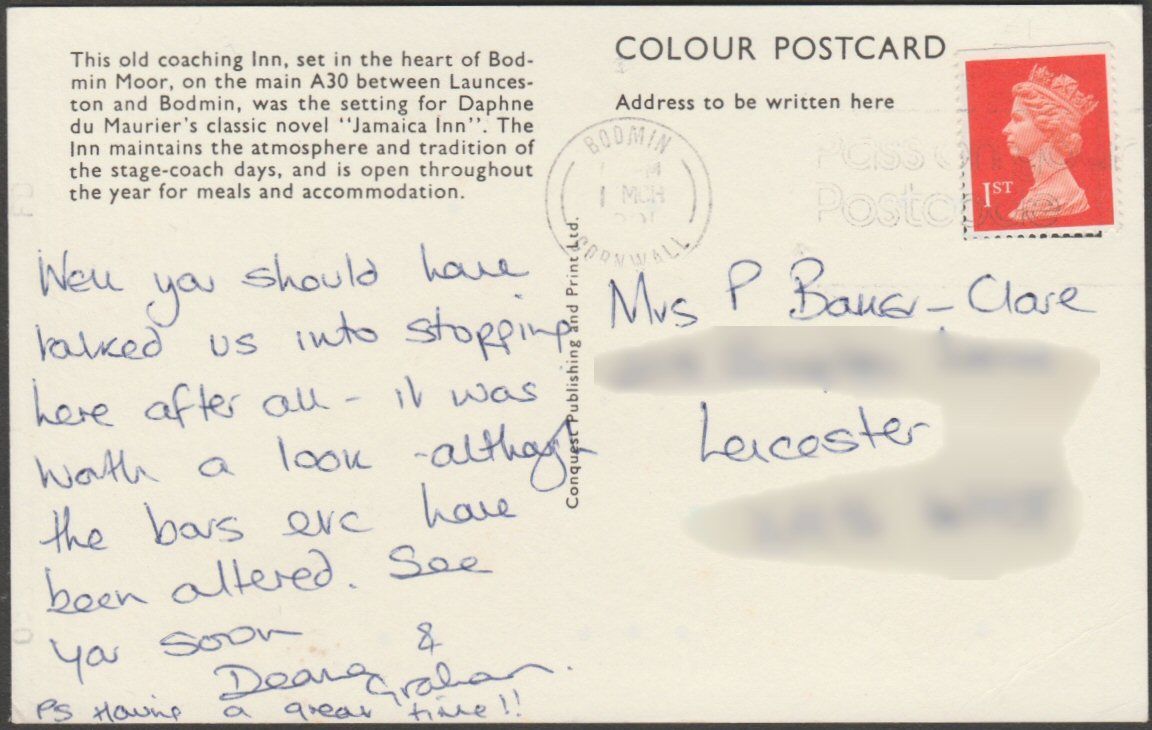 This old coaching Inn, set in the heart of Bod-
min Moor, on the main A30 between Launces-
ton and Bodmin, was the setting for Daphne
du Maurier's classic novel "Jamaica Inn". The
Inn maintains the atmosphere and tradition of
the stage-coach days, and is open throughout
the year for meals and accommodation.
COLOUR POSTCARD
Address to be written here
BODMIN
1 MCH
CORNWALL
1ST
Conquest Publishing and Print Ltd.
Well you should have
talked us into stopping
here after all - it was
worth a look - although
the bars etc have
been altered. See
you soon
Deana &
Graham.
PS Having a great time!!
Mrs P Baker-Clare
Leicester